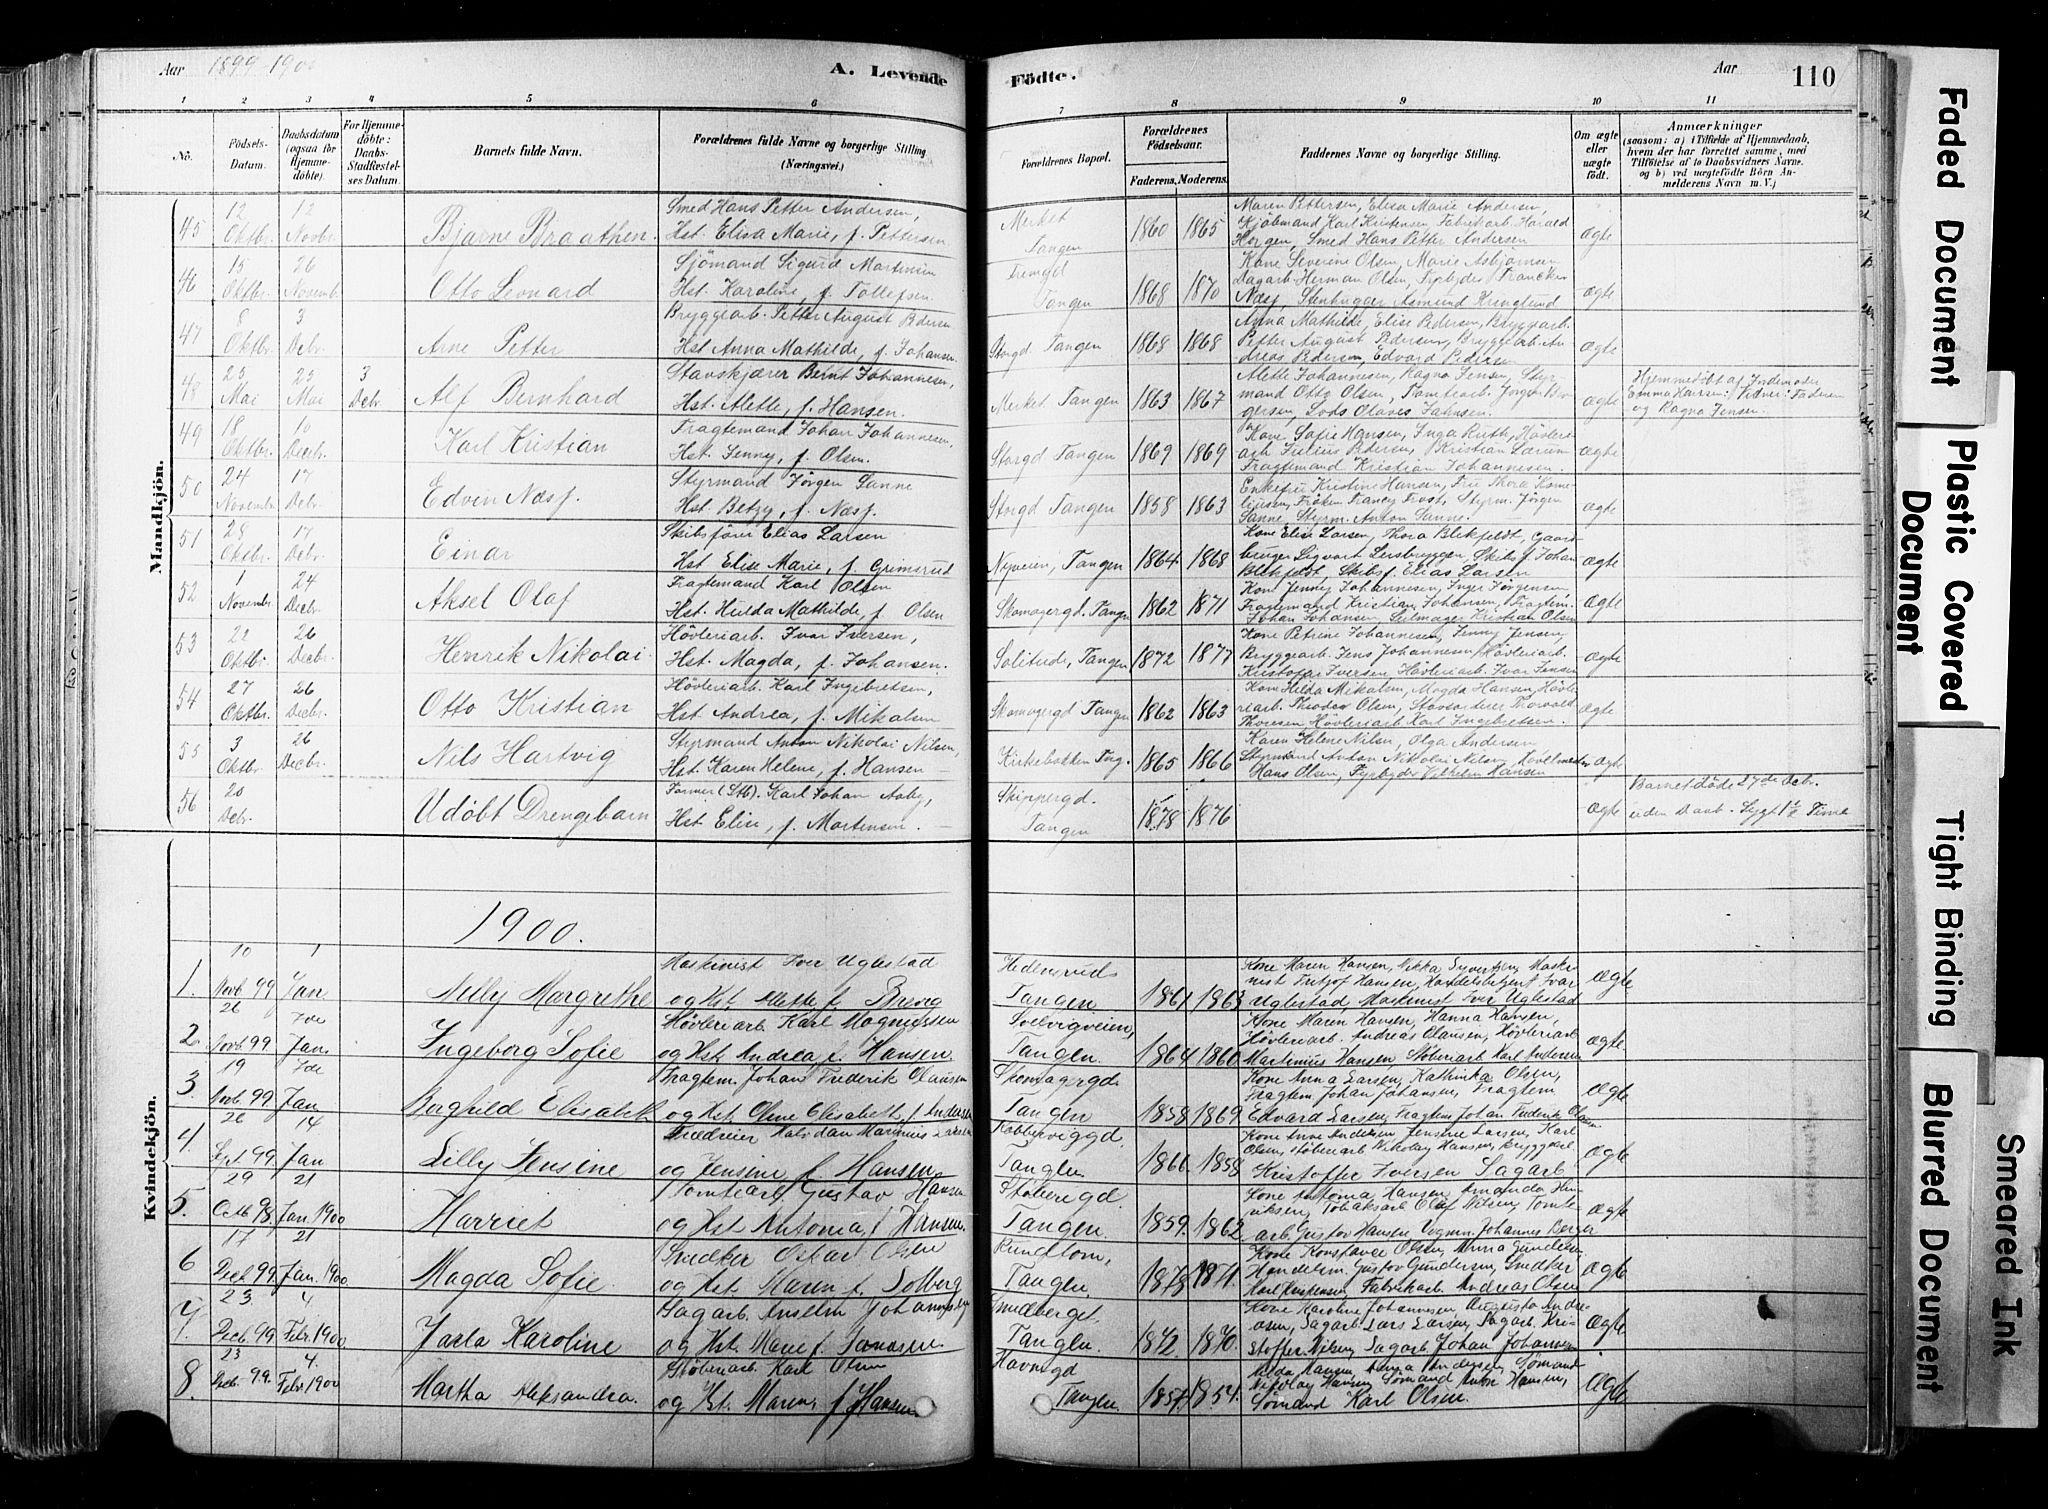 Aar 1899-190
A. Levende
Födte.
Aar
110
1 2 3 4 5 6 7 8 9 10 11
No.
Födsels-
Datum.
Daabsdatum
(ogsaa for
Hjemme-
döbte).
For Hjemme-
döbte:
Daabs-
Stadfæstel-
ses Datum.
Barnets fulde Navn.
Forældrenes fulde Navne og borgerlige Stilling
(Næringsvei.)
Forældrenes Bopæl.
Forældrenes
Födselsaar.
Faderens. Moderens.
Faddernes Navne og borgerlige Stilling.
Om ægte
eller
uægte
födt.
Anmærkninger
(saasom: a) i Tilfælde af Hjemmedaab,
hvem der har forrettet samme, med
Tilföielse af to Daabsvidners Navne.
og b) ved uægtefödte Börn An-
melderens Navn m. V.)
Mandkjön.
45
12
Oktbr.
12
Novbr.
Bjarne Braathen.
Smed Hans Petter Andersen,
Hst. Elisa Marie, f. Pettersen
Merket
Tangen
1860 1865
Maren Pettersen, Elisa Marie Andersen,
Kjöbmand Karl Kristensen, Fabrikarb. Harald
Horgen, Smed Hans Petter Andersen
ægte
46
15
Oktbr.
26
Novemb
Otto Leonard
Sjömand Sigurd Martinsen
Hst. Karoline, f. Tollefsen.
Tangen
1868 1870
Kone Severine Olsen, Marie Asbjørnsen
Dagarb. Herman Olsen,
Næsj, Stenhugger Asmund
ægte
47
8
Oktbr.
3
Debr.
Arne Petter
Bryggearb. Petter August Pedersen
Hst. Anna Mathilde, f. Johansen.
Storgd Tangen
1868 1868
Anna Mathilde, Elise Pedersen, Bryggearb.
Petter August Pedersen, Bryggearb. An-
dreas Pedersen, Edvard Pedersen
ægte
48
25
Mai
25
Mai
3
Debr
Alf Bernhard
Stavskjærer Bernt Johannesen,
Hst. Alette, f. Hansen.
Merket Tangen
1863 1867
Alette Johannesen, Ragna Jensen, Styr-
mand Otto Olsen, Tomtearb. Jørgen Bir-
gersen, Lods Olaves Jahnsen.
ægte
Hjemmedöbt af Jordemoder
Emma Larsen. Vidner: Faderen
og Ragna Jensen.
49
18
Oktbr.
10
Decbr.
Karl Kristian
Fragtemand Johan Johannesen,
Hst. Jenny, f. Olsen.
Storgd Tangen
1869 1869
Kone Sofie Hansen, Inga Ruth, Hövleri-
arb. Julius Pedersen, Kristian Larsen
Fragtemand Kristian Johannesen.
ægte
50
24
Novembr
17
Debr.
Edvin Næsj.
Styrmand Jørgen Sanne
Hst. Betzy, f. Næsj.
Storgd Tangen
1858 1863
Enkefru Kristine Hansen, Fru Thora Korne-
liusen, Frøken Francy Frost, Styrm. Jørgen
Sanne, Styrm. Anton Sanne.
ægte
51
28
Oktbr.
17
Decbr
Einar
Skibsfører Elias Larsen
Hst. Elise Marie, f. Grimsrud
Nyveien, Tangen
1864 1868
Kone Elise Larsen, Thora Blekfeldt, Gaard-
bruger Sigvart Lersbryggen, Skibsf. Johan
Blekfeldt, Skibsf. Elias Larsen
ægte
52
1
Novembr
24
Decbr.
Aksel Olaf
Fragtemand Karl Olsen
Hst. Hulda Mathilde, f. Olsen
Skomagergd. Tangen
1862 1871
Kone Jenny Johannesen, Inger Jørgensen,
Fragtemand Kristian Johansen, Fragtem.
Johan Johansen, Seilmager Kristian Olsen
ægte
53
22
Oktbr.
26
Decbr.
Henrik Nikolai.
Hövleriarb. Ivar Iversen,
Hst. Magda, f. Johansen.
Solitude, Tangen
1872 1877
Kone Petrine Johannesen, Jenny Jensen,
Bryggearb. Jens Johannesen, Hövleriarb.
Kristoffer Iversen, Hövleriarb. Ivar Jensen
ægte
54
27
Oktbr.
26
Decbr.
Otto Kristian
Hövleriarb. Karl Ingebretsen,
Hst. Andrea, f. Mikalsen
Skomagergd Tangen
1862 1863
Kone Hilda Mikalsen, Magda Hansen, Hövle-
riarb. Theodor Olsen, Stavsorterer Thorvald
Thoresen, Hövleriarb. Karl Ingebretsen.
ægte
55
3
Oktbr.
26
Decbr.
Nils Hartvig
Styrmand Anton Nikolai Nilsen,
Hst. Karen Helene, f. Hansen
Kirkebakken Tng.
1865 1866
Karen Helene Nilsen, Olga Andersen
Styrmand Anton Nikolai Nilsen,
Hans Olsen, Fyrbyder Vilhelm Hansen
ægte
56
20
Debr.
Udöbt Drengebarn
Former (Stb). Karl Johan Aasby,
Hst. Elise, f. Mortensen.
Skippergd.
Tangen
1878 1876
ægte
Barnet döde 27de Debr.
uden Daab.
1900.
Kvindekjön.
1.
10
Novb 99
1
Jan.
Nelly Margrethe
Maskinist Iver Uglestad
og Hst. Alette f. Brevig
Hedensruds
Tangen
1861 1863
Kone Maren Hansen, Nikka Syvertsen, Maski-
nist Fritjof Hansen, Handelsbetjent Ivar
Uglestad, Maskinist Iver Uglestad
Ægte
2.
26
Novb 99
7de
Jan.
Ingeborg Sofie
Hövleriarb. Karl Magnussen
og Hst. Andrea f. Hansen.
Svelvigveien,
Tangen.
1864 1860
Kone Maren Hansen, Hanna Hansen,
Hövleriarb. Andreas Olausen, Hövleriarb
Martinius Hansen, Stöberiarb Karl Andersen
Ægte.
3.
19
Novb. 99
7de
Jan
Borghild Elisabeth
Fragtem. Johan Frederik Olausen
og Hst. Oline Elisabeth f. Andersen
Skomagergd.
Tangen
1858 1869
Kone Anna Larsen, Kathinka Olsen,
Fragtem Johan Johansen, Fragtem
Edvard Larsen, Fragtem. Johan Frederik Olausen
Ægte
4.
26
Sept 99.
14
Jan
Lilly Jensine
Halvdan Marinius Larsen
og Jensine f. Hansen
Kobberviggd.
Tangen
1866 1858
Kone Anne Andersen, Jensine Larsen, Karl
Olsen, Stöberiarb Nikolay Hansen, Bryggearb
Kristoffer Iversen Sagarb.
Ægte
5.
29
Octb 98.
21
Jan. 1900
Harriet
Tomtearb. Gustav Hansen
og Hst. Antonia f. Hansen
Stöberigd.
Tangen.
1859. 1862
Kone Antonia Hansen, Amanda Hen-
riksen, Tobaksarb Olaf Nilsen, Tomte-
arb. Gustav Hansen Vognm. Johannes Berger
Ægte
6
17
Decb 99.
21
Jan. 1900
Magda Sofie
Snedker Oskar Olsen
og Hst. Maren f. Solberg
Rundtom,
Tangen.
1878 1871.
Kone Konstance Olsen, Anna Gundersen
Handelsm. Gustav Gundersen, Snedker
Karl Kaspersen, Fabrikarb. Andreas Olsen
Ægte
7.
23.
Decb 99.
4
Febr. 1900
Jarla Karoline
Sagarb. Anselm Johannesen
og Hst. Marie f. Jonassen.
Smedberget.
Tangen.
1872. 1870.
Kone Karoline Johannesen, Augusta Andre-
asen, Sagarb Lars Larsen, Sagarb. Kri-
stoffer Nilsen, Sagarb Johan Johansen
Ægte.
8.
23
Decb. 99.
4.
Febr. 1900
Martha Aleksandra.
Stöberiarb. Karl Olsen
og Hst. Maren f. Hansen.
Havnegd
Tangen.
1857. 1854.
Hilda Hansen, Anna Andersen, Sømand
Nikolay Hansen, Sømand Anton Hansen,
Sømand Karl Olsen.
Ægte
Faded Document
Plastic Covered
Document
Tight Binding
Blurred Document
Smeared Ink